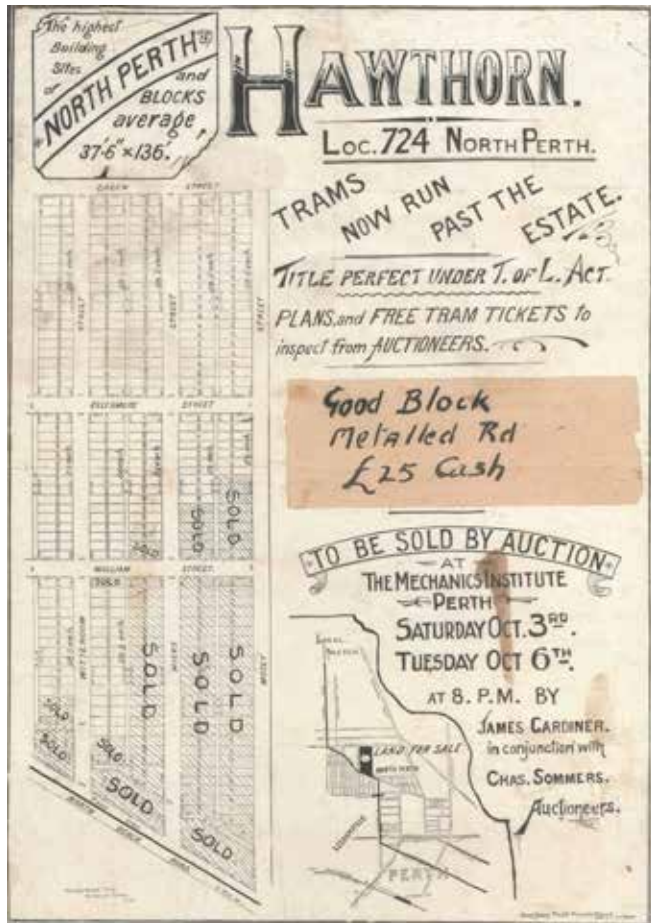 The highest
Building
Sites
of
NORTH PERTH
and
BLOCKS
average
37'.6" × 136'.
HAWTHORN.
LOC. 724 NORTH PERTH.
TRAMS
NOW RUN
PAST THE
ESTATE.
TITLE PERFECT UNDER T. OF L. ACT.
PLANS, and FREE TRAM TICKETS to
inspect from AUCTIONEERS.
Good Block
Metalled Rd
£25 Cash
TO BE SOLD BY AUCTION
AT
THE MECHANICS INSTITUTE
PERTH
SATURDAY OCT. 3RD.
TUESDAY OCT 6TH.
AT 8. P.M. BY
JAMES GARDINER.
in conjunction with
CHAS. SOMMERS.
Auctioneers.
LOCAL
SKETCH
LAND FOR SALE
NORTH PERTH
PERTH
GREEN STREET
STREET
STREET
STREET
ELLESMERE STREET
SOLD
SOLD
SOLD
WILLIAM STREET.
SOLD
SOLD
SOLD
SOLD
SOLD
SOLD
SOLD
SOLD
SOLD
NORTH BEACH ROAD